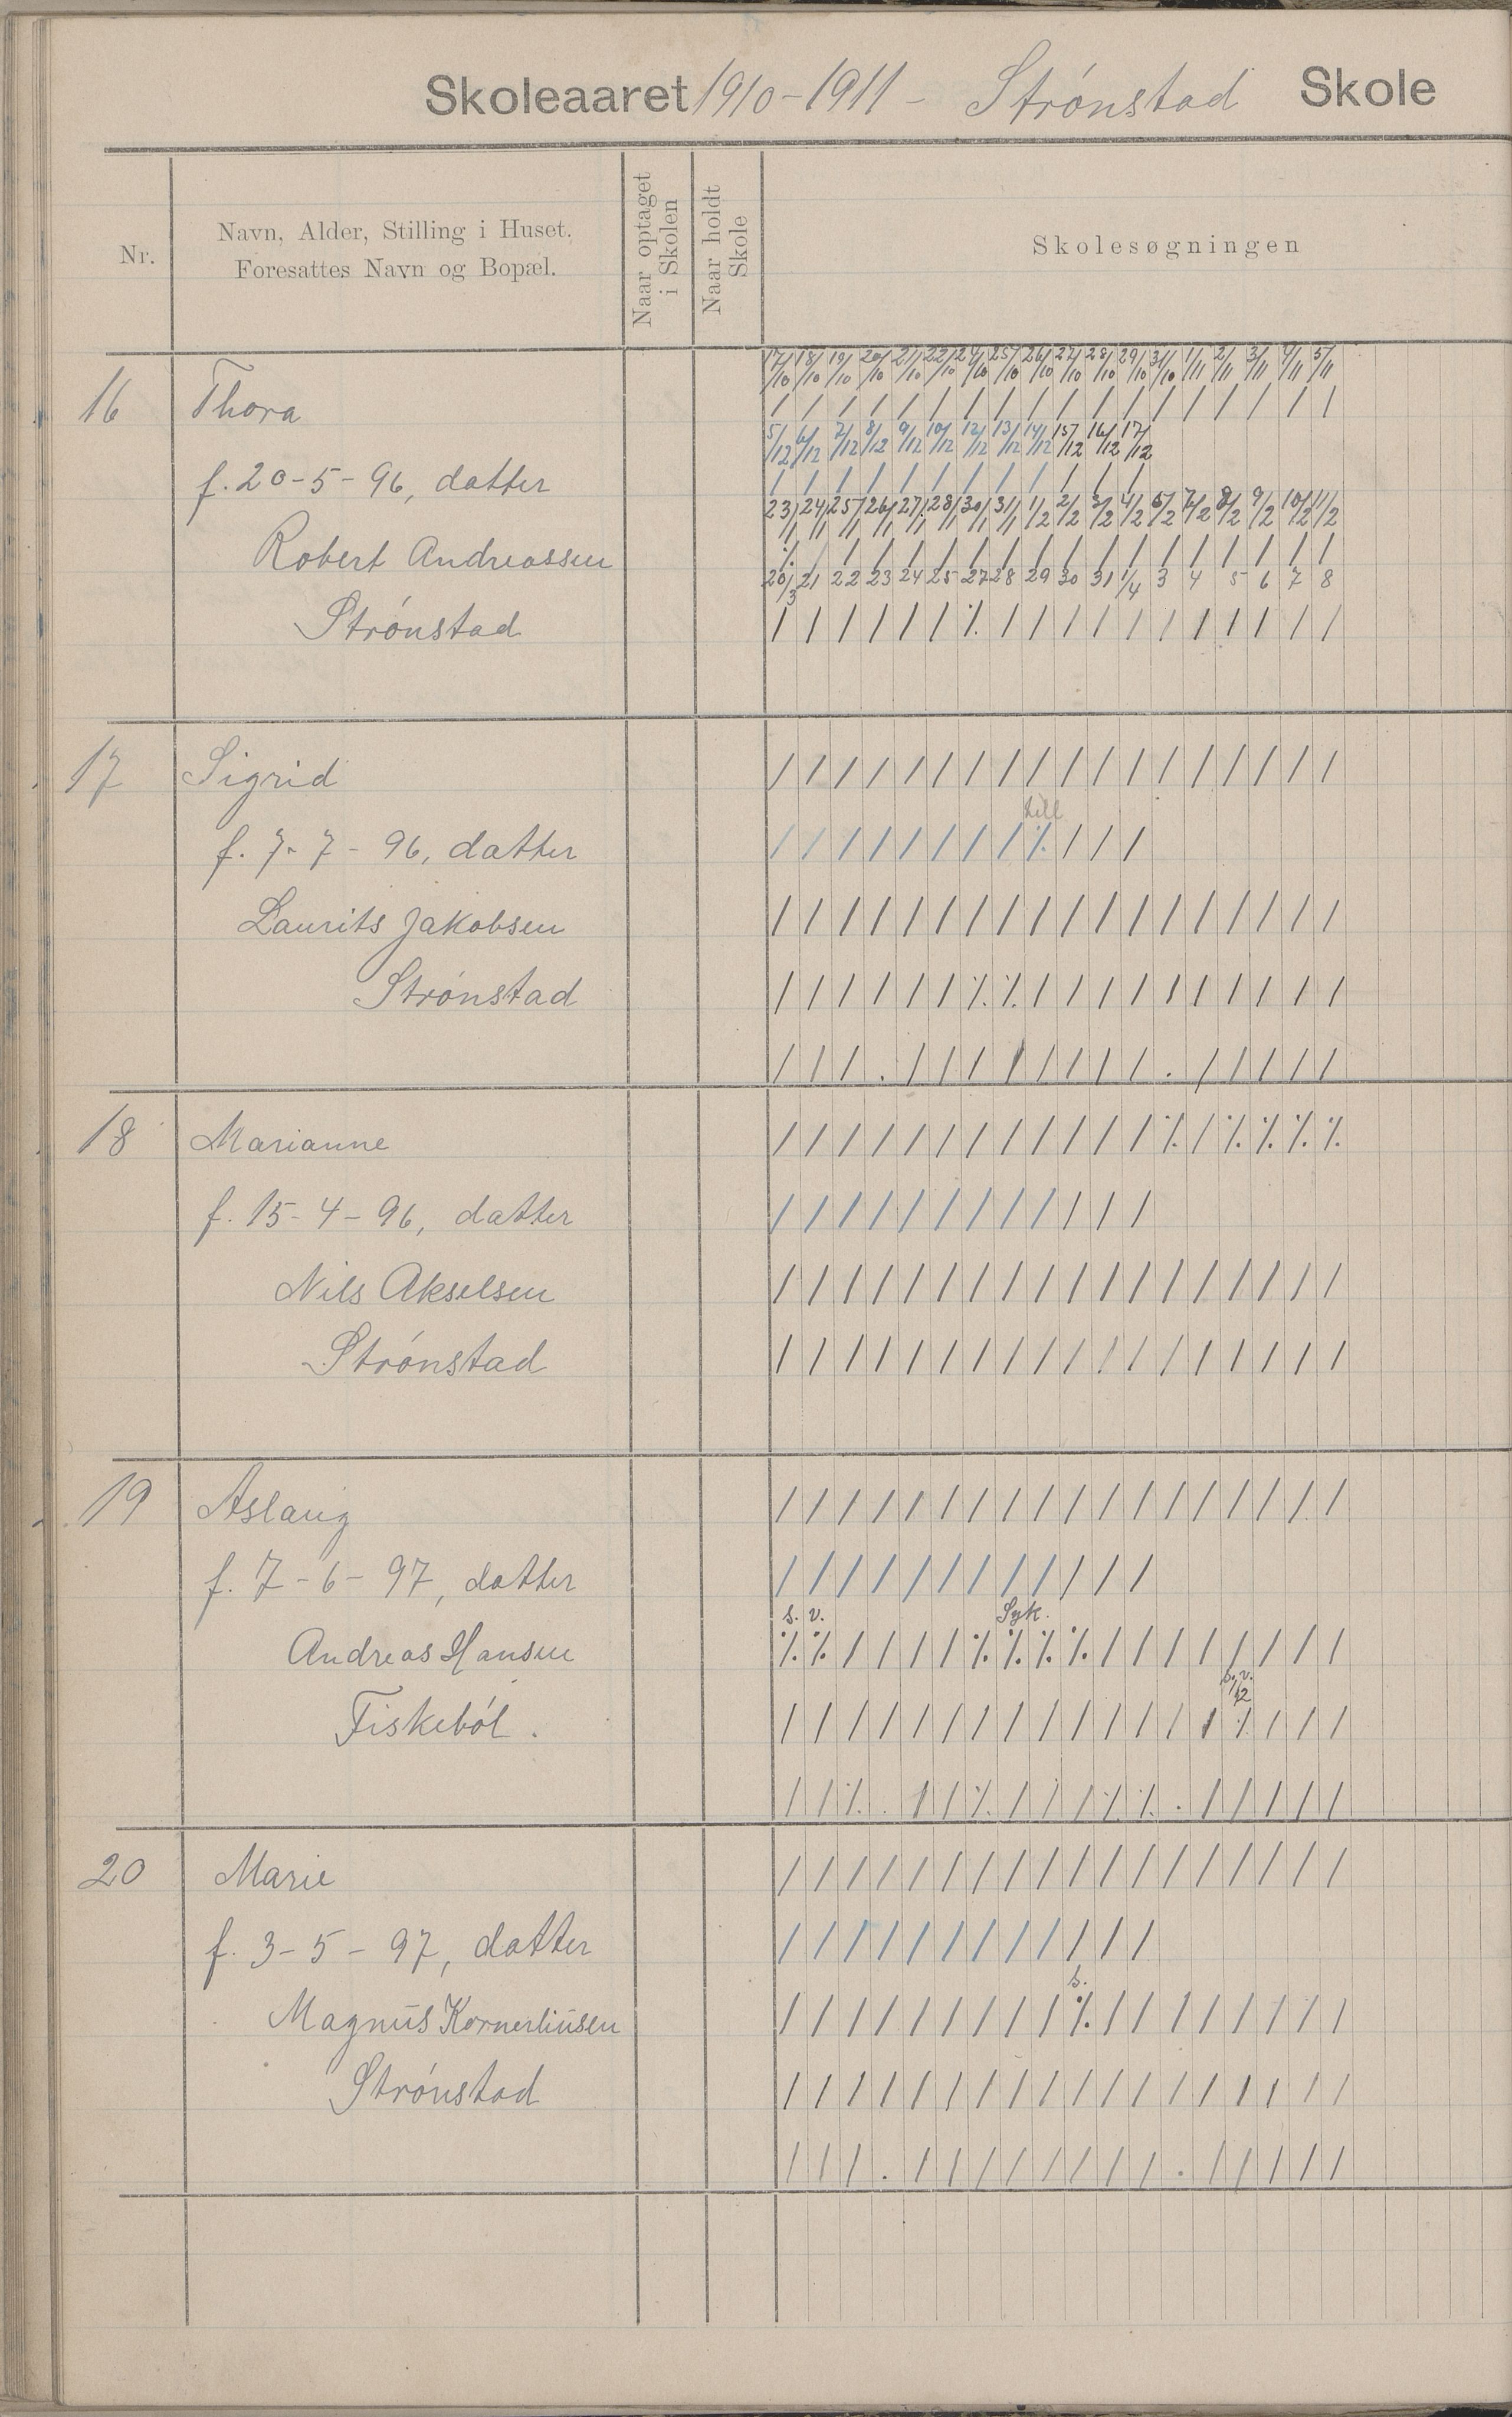 Skoleaaret 1910-1911 - Strónstad Skole
Nr.
Navn, Alder, Stilling i Huset.
Foresattes Navn og Bopæl.
Naar optaget
i Skolen
Naar holdt
Skole
Skolesøgningen
17/10 18/10 19/10 20/10 21/10 22/10 24/10 25/10 26/10 27/10 28/10 29/10 31/10 1/11 2/11 3/11 4/11 5/11
16 Thora / / / / / / / / / / / / / / / / / /
5/12 6/12 7/12 8/12 9/12 10/12 12/12 13/12 14/12 15/12 16/12 17/12
f. 20-5-96, datter / / / / / / / / / / / /
23/1 24/1 25/1 26/1 27/1 28/1 30/1 31/1 1/2 2/2 3/2 4/2 6/2 7/2 8/2 9/2 10/2 11/2
Robert Andreassen ·/. / / / / / / / / / / / / / / / / /
20/3 21 22 23 24 25 27 28 29 30 31 1/4 3 4 5 6 7 8
Strónstad / / / / / / ·/. / / / / / / / / / / /
17 Sigrid / / / / / / / / / / / / / / / / / /
till
f. 7-7-96, datter / / / / / / / / ·/. / / /
Laurits Jakobsen / / / / / / / / / / / / / / / / / /
Strónstad / / / / / / ·/. ·/. / / / / / / / / / /
/ / / . / / / / / / / / . / / / / /
18 Marianne / / / / / / / / / / / / ·/. / ·/. ·/. ·/. ·/.
f. 15-4-96, datter / / / / / / / / / / / /
Nils Akselsen / / / / / / / / / / / / / / / / / /
Strónstad / / / / / / / / / / / / / / / / / /
19 Aslaug / / / / / / / / / / / / / / / / / /
f. 7-6-97, datter / / / / / / / / / / / /
s. v. Syk.
Andreas Hansen ·/. ·/. / / / / ·/. ·/. ·/. ·/. / / / / / / / /
Fiskeból. / / / / / / / / / / / / / / ·/. / / /
/ / ·/. . / / ·/. / / / ·/. ·/. . / / / / /
20 Marie / / / / / / / / / / / / / / / / / /
f. 3-5-97, datter / / / / / / / / / / / /
s.
Magnus Kornerliusen / / / / / / / / / ·/. / / / / / / / /
Strónstad / / / / / / / / / / / / / / / / / /
/ / / . / / / / / / / / . / / / / /